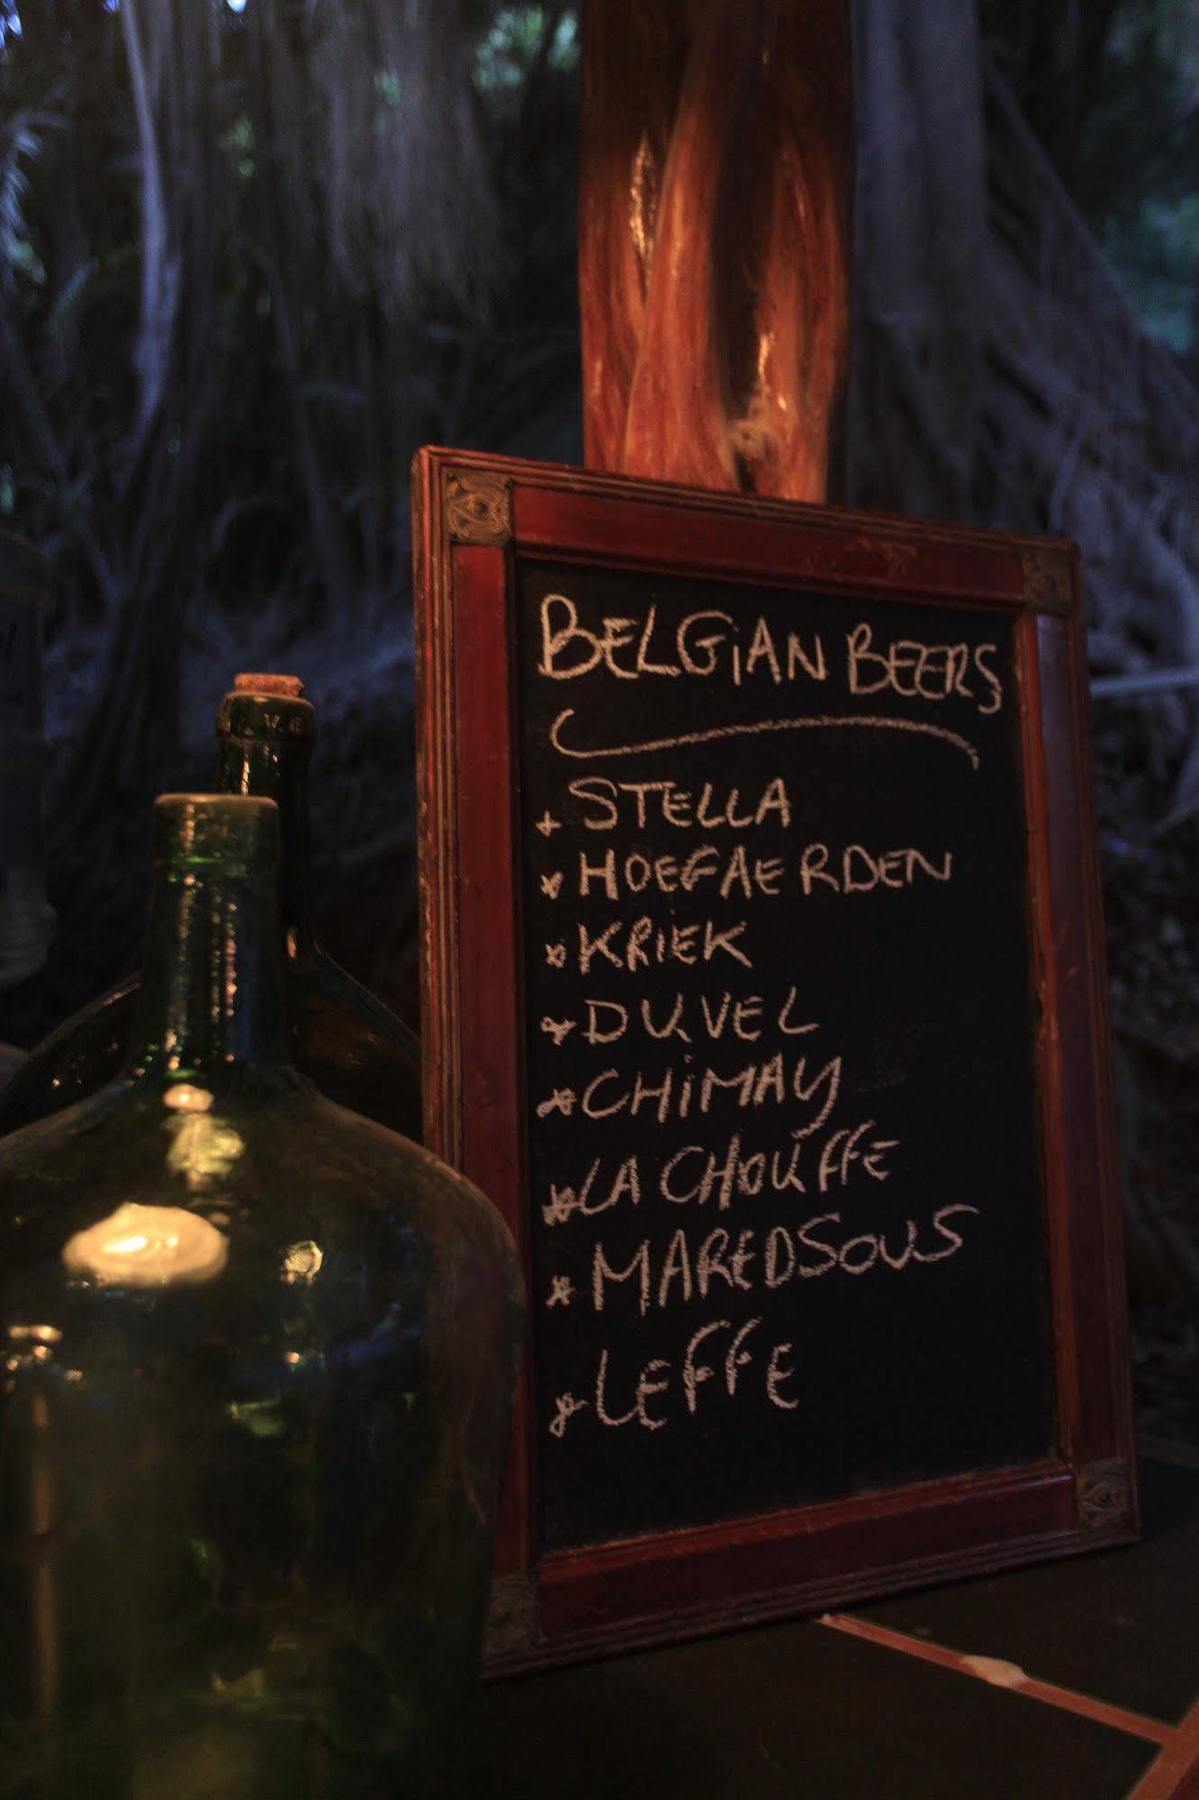 BELGiAN BEERS
STELLA
HOEGAERDEN
KRiEK
DUVEL
CHiMAY
LA CHOUFFE
MAREDSOUS
LEFFE